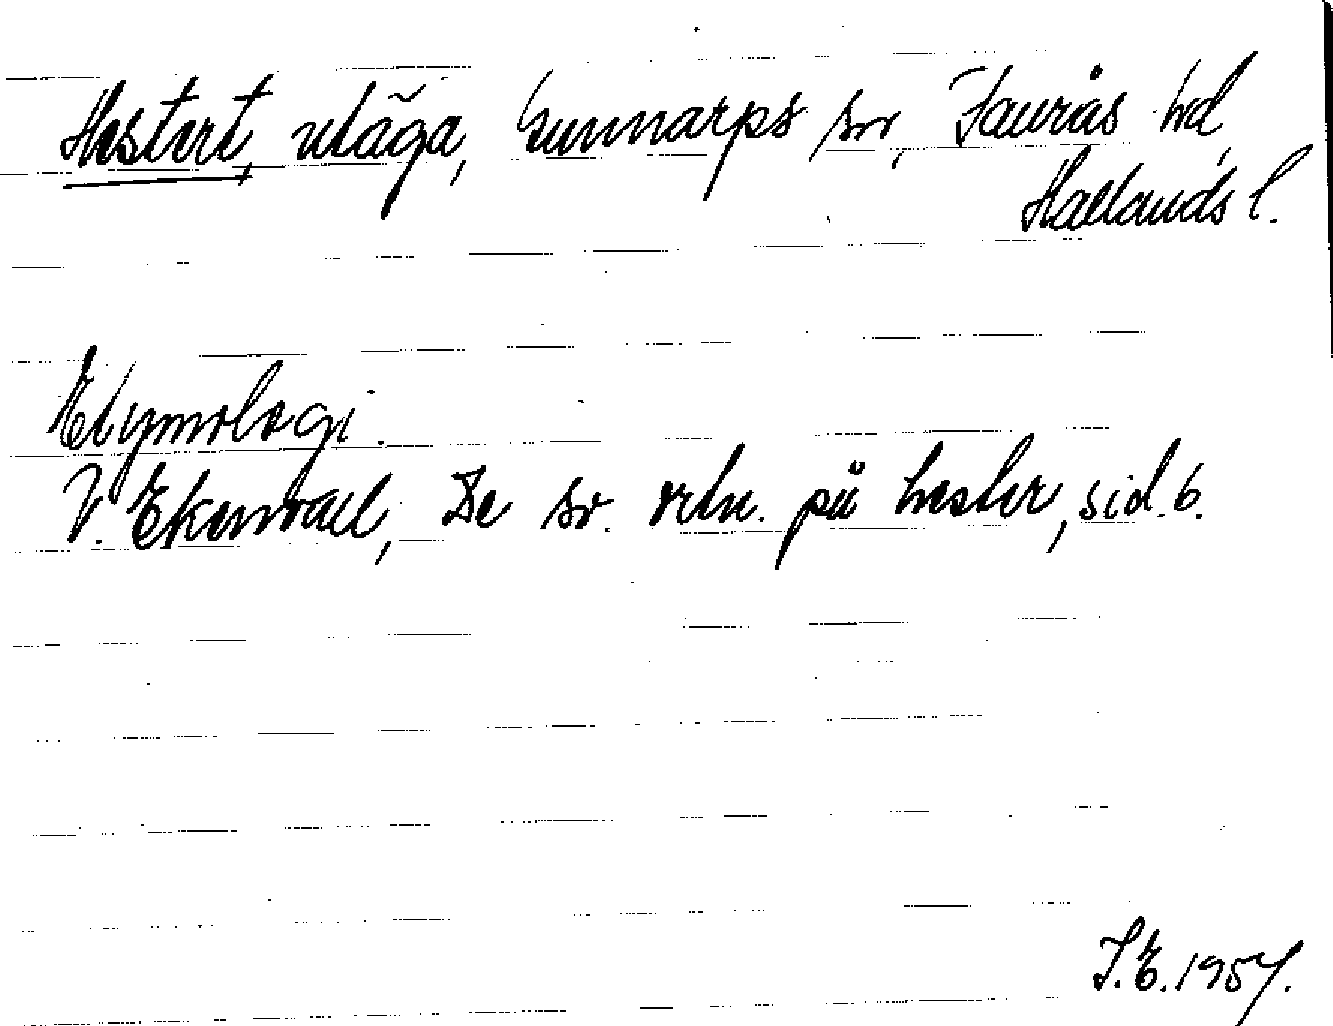 Hestert, utäga, Gunnarps sn, Faurås hd,
Hallands l.
Etymologi.
V. Ekenvall, De sv. ortn. på hester, sid. 6.
I.E. 1957.